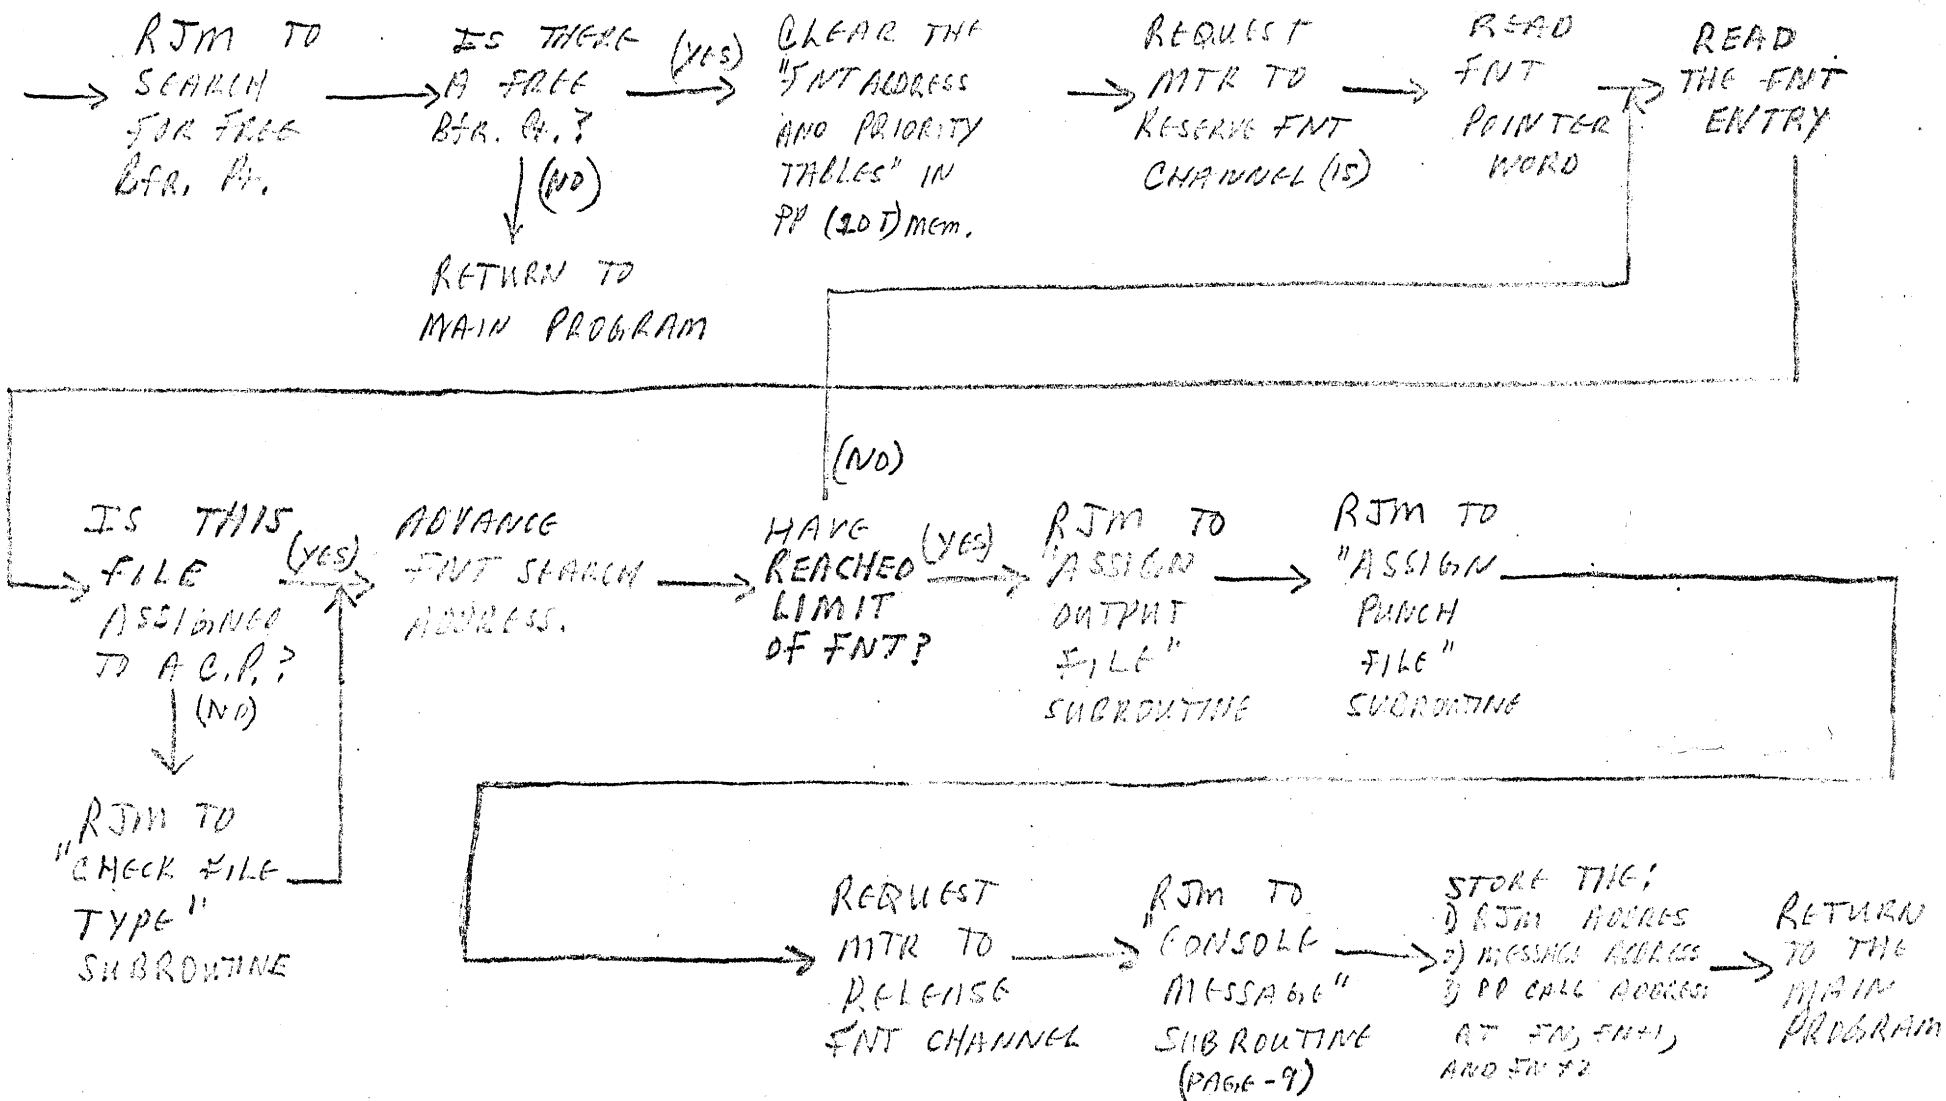 RJM TO
SEARCH
FOR FREE
BFR. PT.
IS THERE
A FREE
BFR. PT.?
(YES)
(NO)
RETURN TO
MAIN PROGRAM
CLEAR THE
"FNT ADDRESS
AND PRIORITY
TABLES" IN
PP (1DT) MEM.
REQUEST
MTR TO
RESERVE FNT
CHANNEL (15)
READ
FNT
POINTER
WORD
READ
THE FNT
ENTRY
IS THIS
FILE
ASSIGNED
TO A C.P.?
(YES)
(NO)
RJM TO
"CHECK FILE
TYPE"
SUBROUTINE
ADVANCE
FNT SEARCH
ADDRESS.
(NO)
HAVE
REACHED
LIMIT
OF FNT?
(YES)
RJM TO
"ASSIGN
OUTPUT
FILE"
SUBROUTINE
RJM TO
"ASSIGN
PUNCH
FILE"
SUBROUTINE
REQUEST
MTR TO
RELEASE
FNT CHANNEL
RJM TO
"CONSOLE
MESSAGE"
SUBROUTINE
(PAGE-9)
STORE THE:
1) RJM ADDRES
2) MESSAGE ADDRESS
3) PP CALL ADDRESS
AT FN, FN+1,
AND FN+2
RETURN
TO THE
MAIN
PROGRAM